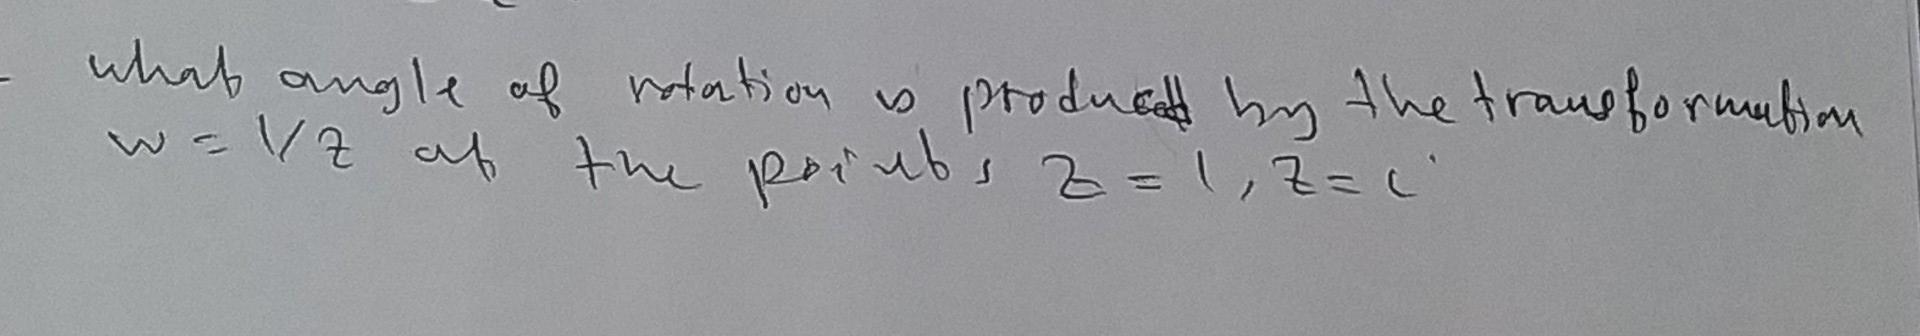 what angle of rotation is produced by the transformation
w = 1/z at the points z = 1, z = i